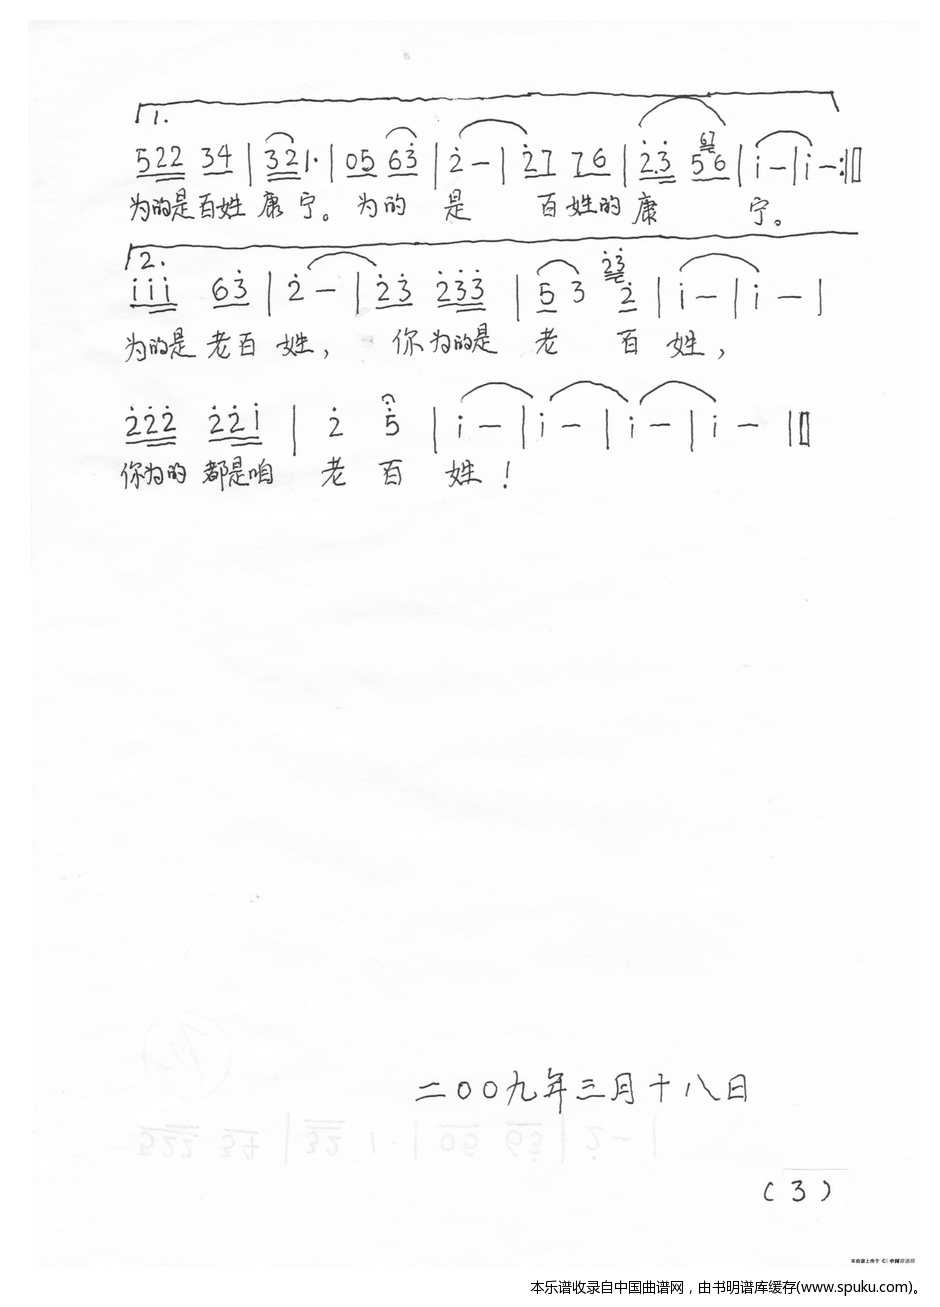 1.
5 2 2 3 4 | 3 2 1· | 0 5 6 3̇ | 2̇ — | 2̇ 7 7 6 | 2̇ 3̇ 5 6 | i — | i — :||
为的是百姓康宁。为的 是 百姓的康 宁。
2.
i i i 6 3̇ | 2̇ — | 2̇ 3̇ 2̇ 3̇ 3̇ | 5̇ 3 2̇3̇ 2̇ | i — | i — |
为的是老百姓， 你为的是 老 百 姓，
2̇ 2̇ 2̇ 2̇ 2̇ i | 2̇ 5̇ | i — | i — | i — | i — ||
你为的都是咱 老 百 姓！
二〇〇九年三月十八日
(3)
本乐谱收录自中国曲谱网，由书明谱库缓存(www.spuku.com)。